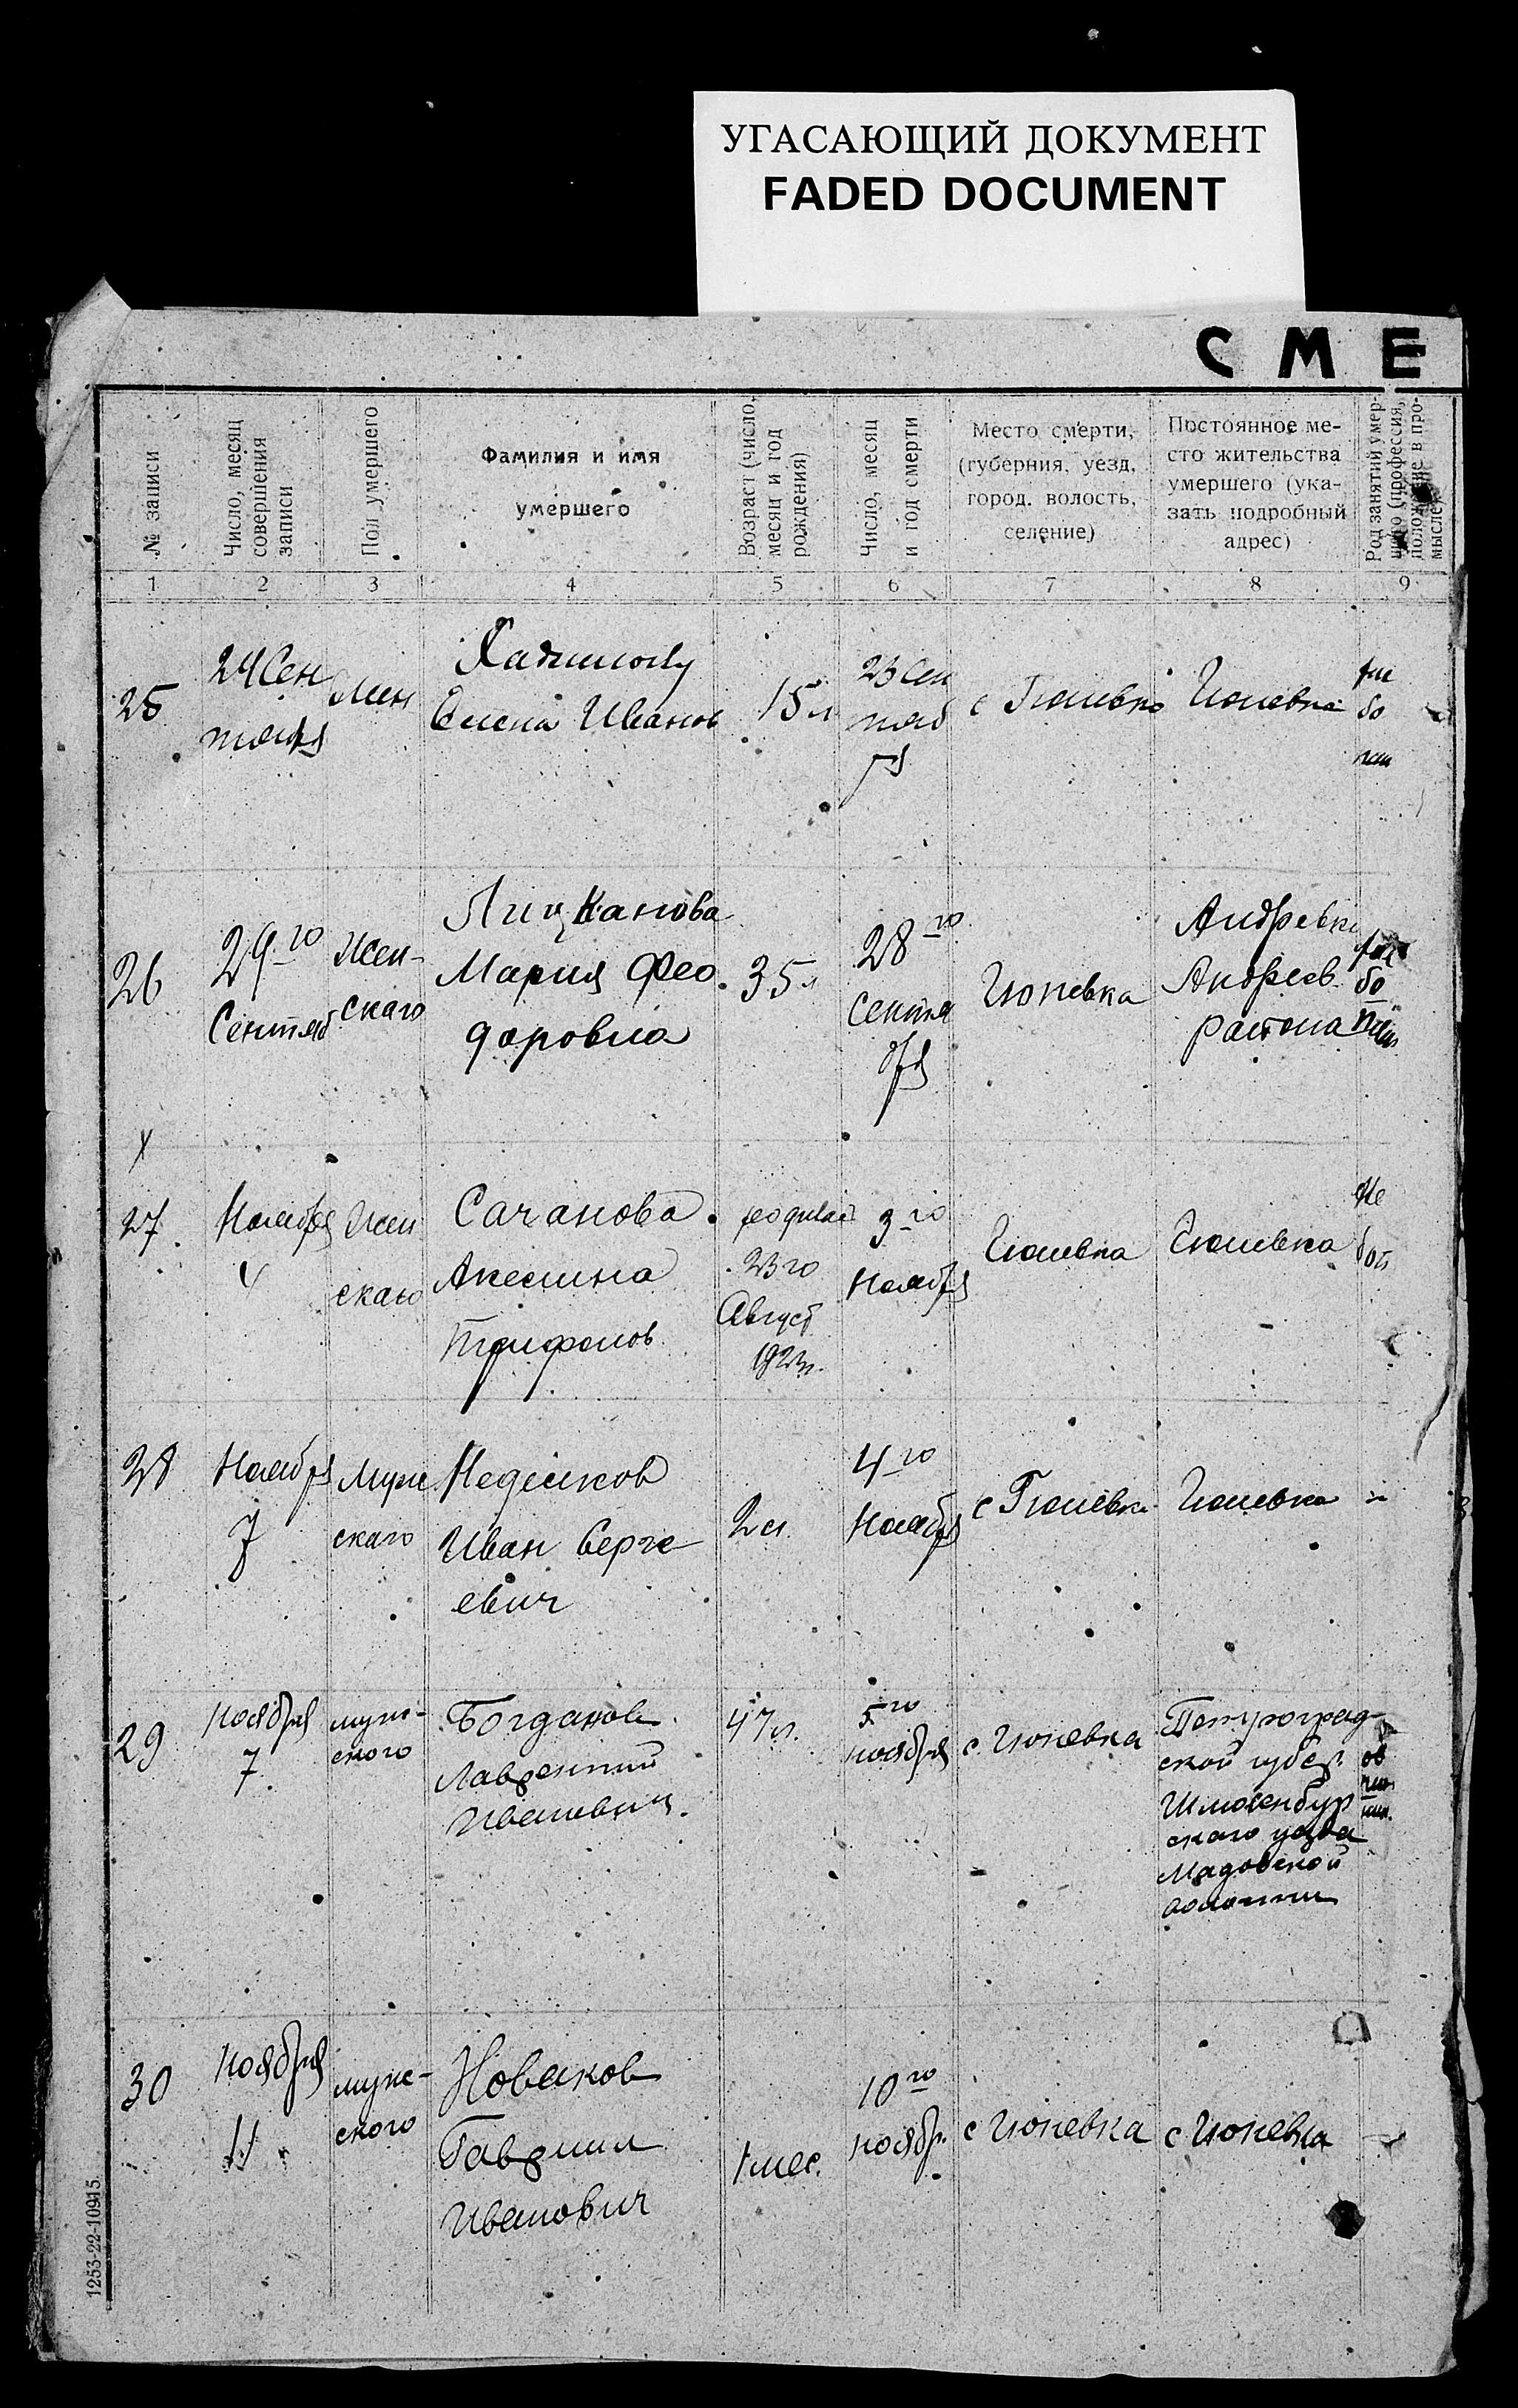 УГАСАЮЩИЙ ДОКУМЕНТ
FADED DOCUMENT
СМЕ
№ записи
Число, месяц
совершения
записи
Пол умершего
Фамилия и имя
умершего
Возраст (число,
месяц и год
рождения)
Число, месяц
и год смерти
Место смерти,
(губерния, уезд,
город, волость,
селение)
Постоянное ме-
сто жительства
умершего (ука-
зать подробный
адрес)
Род занятий умер-
шего (профессия,
положение в про-
мысле)
1 2 3 4 5 6 7 8 9
25
24 Сен
тября
Жен
Елена Иванов
15 л
23 Сен
тяб
ря
с Гюневка
Гюневка
26
29-го
Сентяб
Жен-
скаго
Лицканова
Мария Фео
доровна
35 л
28-го
сентя
бря
Гюневка
Андревка
Андреев
района
27
Ноября
4
Жен
скаго
Сачанова
Акесинa
Трифонов
23 го
Август
1923 г.
3-го
Ноября
Гюневка
Гюневка
28
Ноября
7
Муж
скаго
Недéлков
Иван Серге
евич
2 л.
4-го
Ноября
с Гюневка
Гюневка
29
ноября
7.
муж-
ского
Богданов
Лаврентий
Иванович.
47 л.
5-го
ноября
с. Гюневка
Петроград-
ской губер.
скаго уезда
волости
30
ноября
11
муж-
ского
Новаков
Гавриил
Иванович
1 мес.
10-го
ноябр.
с Гюневка
с Гюневка
1253-22-10915